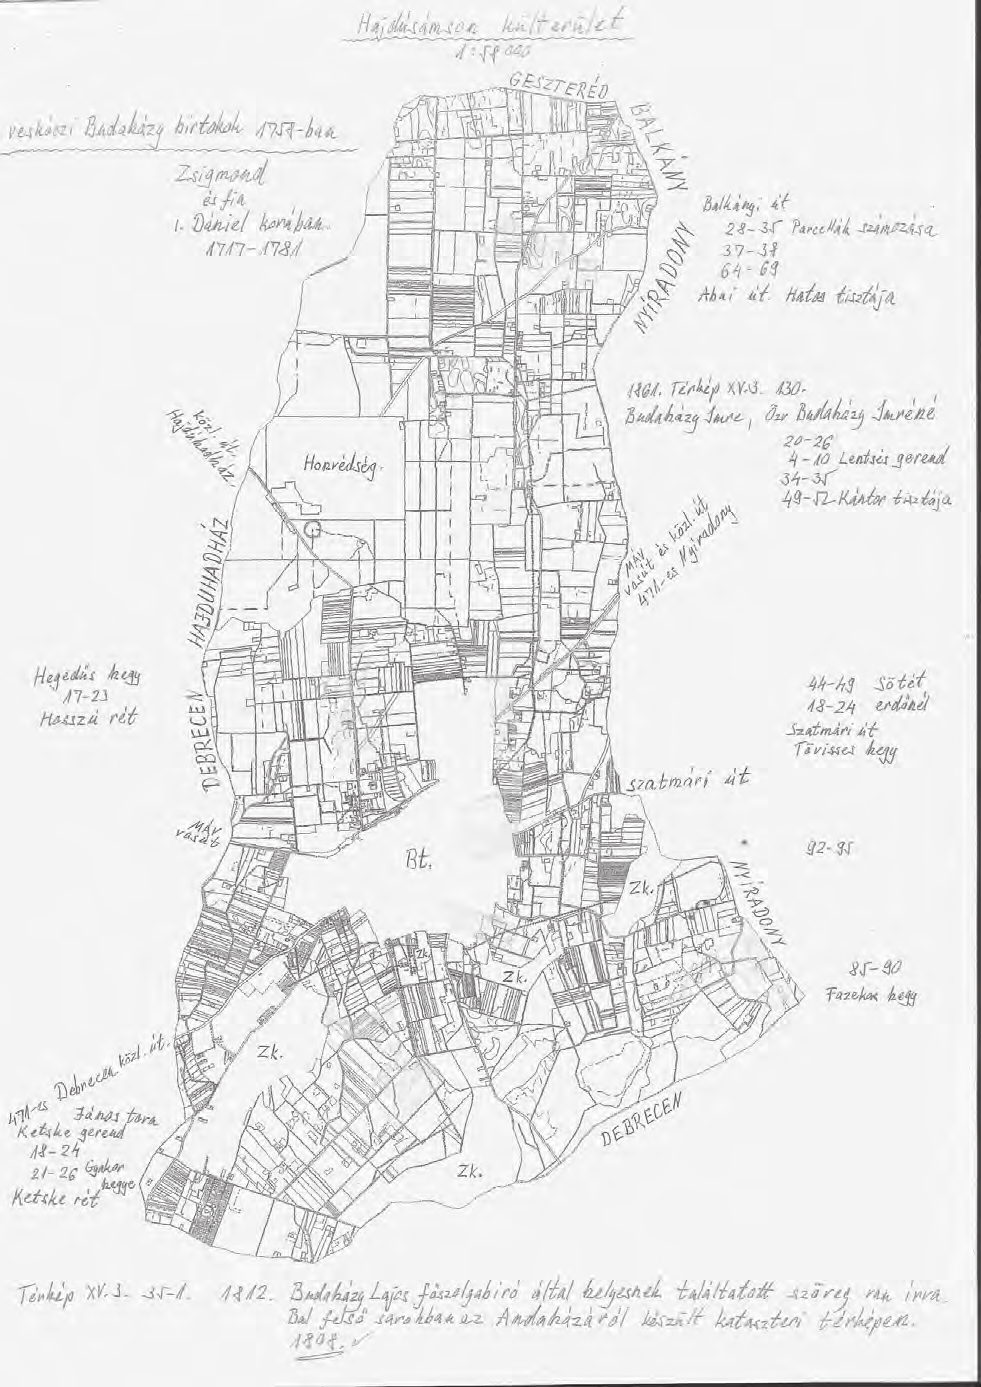 Hajdúsámson külterület
GESZTERÉD
BALKÁNY
Budaházy birtokok 1757-ban
Zsigmond
és fia
1. Dániel korában
1717-1781
NYÍRADONY
Balkányi út
28-35 Parcellák számozása
37-38
64-69
Abai út Hatos tisztája
1861. Térkép XV.3. 130.
Budaházy Imre, Özv Budaházy Imréné
20-26
4-10 Lentsés gerend
34-35
49-52 Kántor tisztája
közl. út.
Hajdúhadház
Honvédség.
MÁV
vasút és közl. út
471-es Nyíradony
HAJDUHADHÁZ
Hegedűs hegy
17-23
Hosszú rét
DEBRECEN
44-49 Sötét
18-24 erdőnél
Szatmári út
Tövisses hegy
szatmári út
MÁV
vasút
Bt.
92-95
Zk.
NYÍRADONY
Zk.
Zk.
85-90
Fazekas hegy
Zk.
471-es Debrecen közl. út.
János tava
Ketske gerend
18-24
21-26 Gyakor
hegye
Ketske rét
Zk.
DEBRECEN
Térkép XV.3. 35-1. 1812. Budaházy Lajos főszolgabíró által helyesnek találtatott szöveg van írva.
Bal felső sarokban az Andaházáról készült kataszteri térképen.
1808.